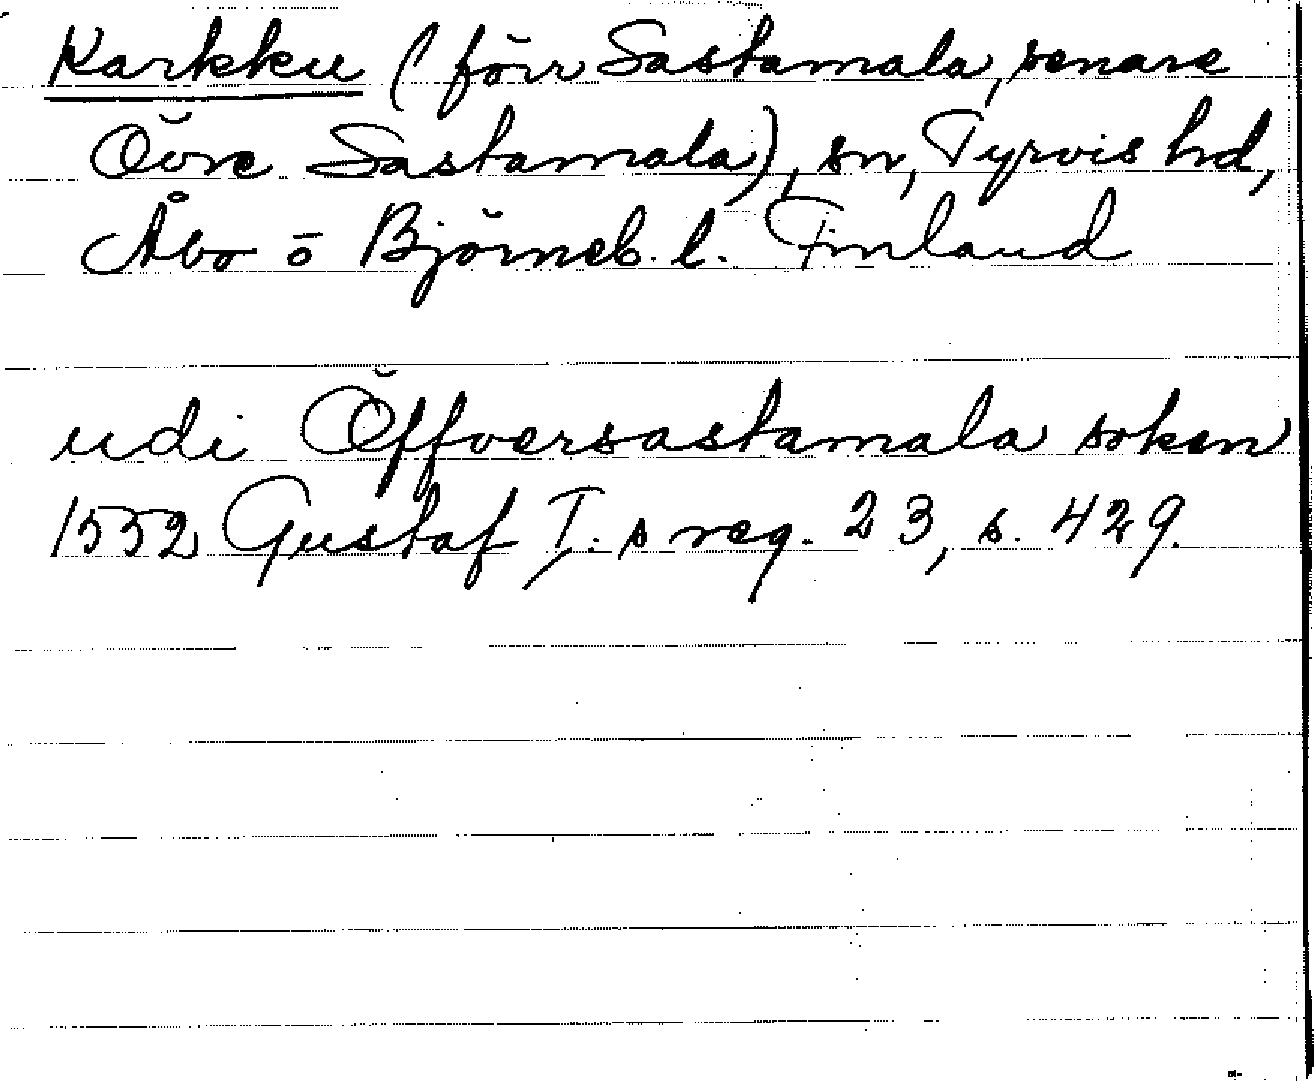 Karkku (förr Sastamala, senare
Övre Sastamala), sn, Tyrvis hd,
Åbo o Björneb. l. Finland
udi Öffversastamala soken
1552 Gustaf I:s reg. 23, s. 429.